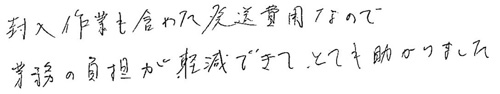 封入作業も含めた発送費用なので
業務の負担が軽減できて、とても助かりました